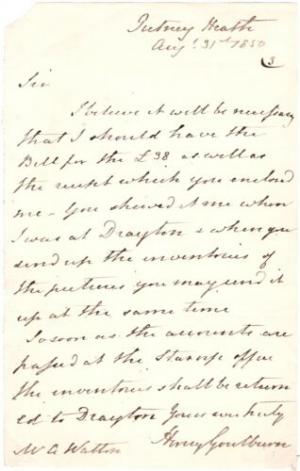 Putney Heath
Aug. 31st 1850
Sir
I believe it will be necessary
that I should have the
Bill for the £38 as well as
the receipt which you enclosed
me - You shewed it me when
I was at Drayton & when you
send up the inventories of
the pictures you may send it
up at the same time
So soon as the accounts are
passed at the Stamp office
the inventories shall be return
ed to Drayton Yours
Henry Goulburn
Mr G Watton